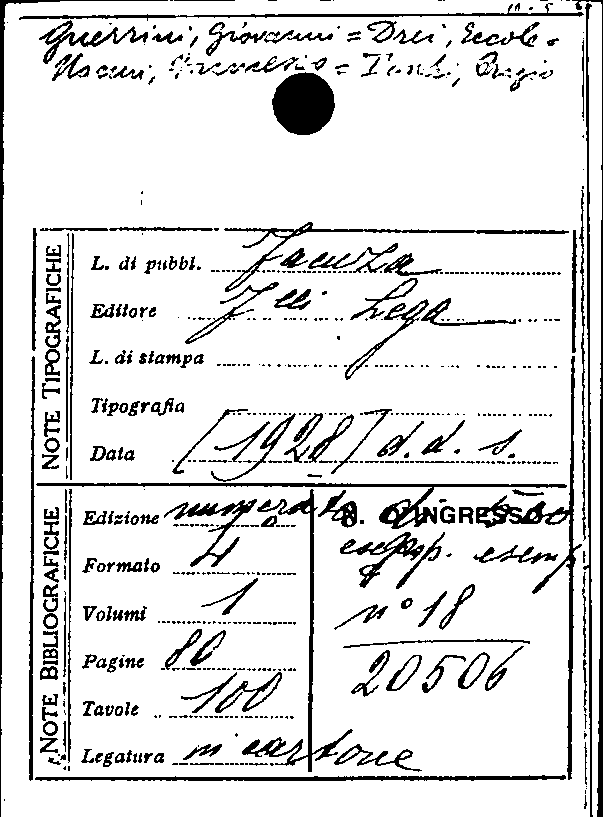 Guerrini, Giovanni = Drei, Ercole =
Nonni, Francesco =
NOTE TIPOGRAFICHE
L. di pubbl. Faenza
Editore F.lli Lega
L. di stampa
Tipografia
Data [1928] d. d. s.
NOTE BIBLIOGRAFICHE
Edizione numerata di
N. D'INGRESSO
esempl. esemp.
Formato 4
Volumi 1
n° 18
Pagine 80
20506
Tavole 100
Legatura in cartone